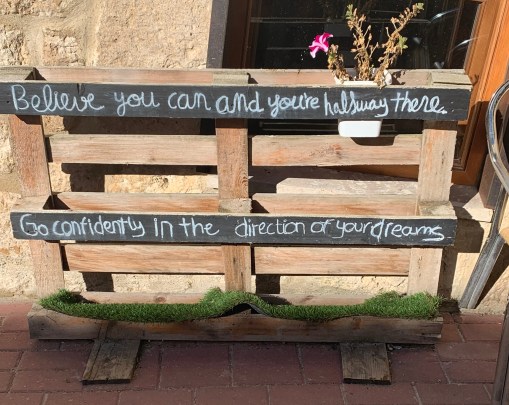 Believe you can and you're halfway there.
Go confidently in the direction of your dreams